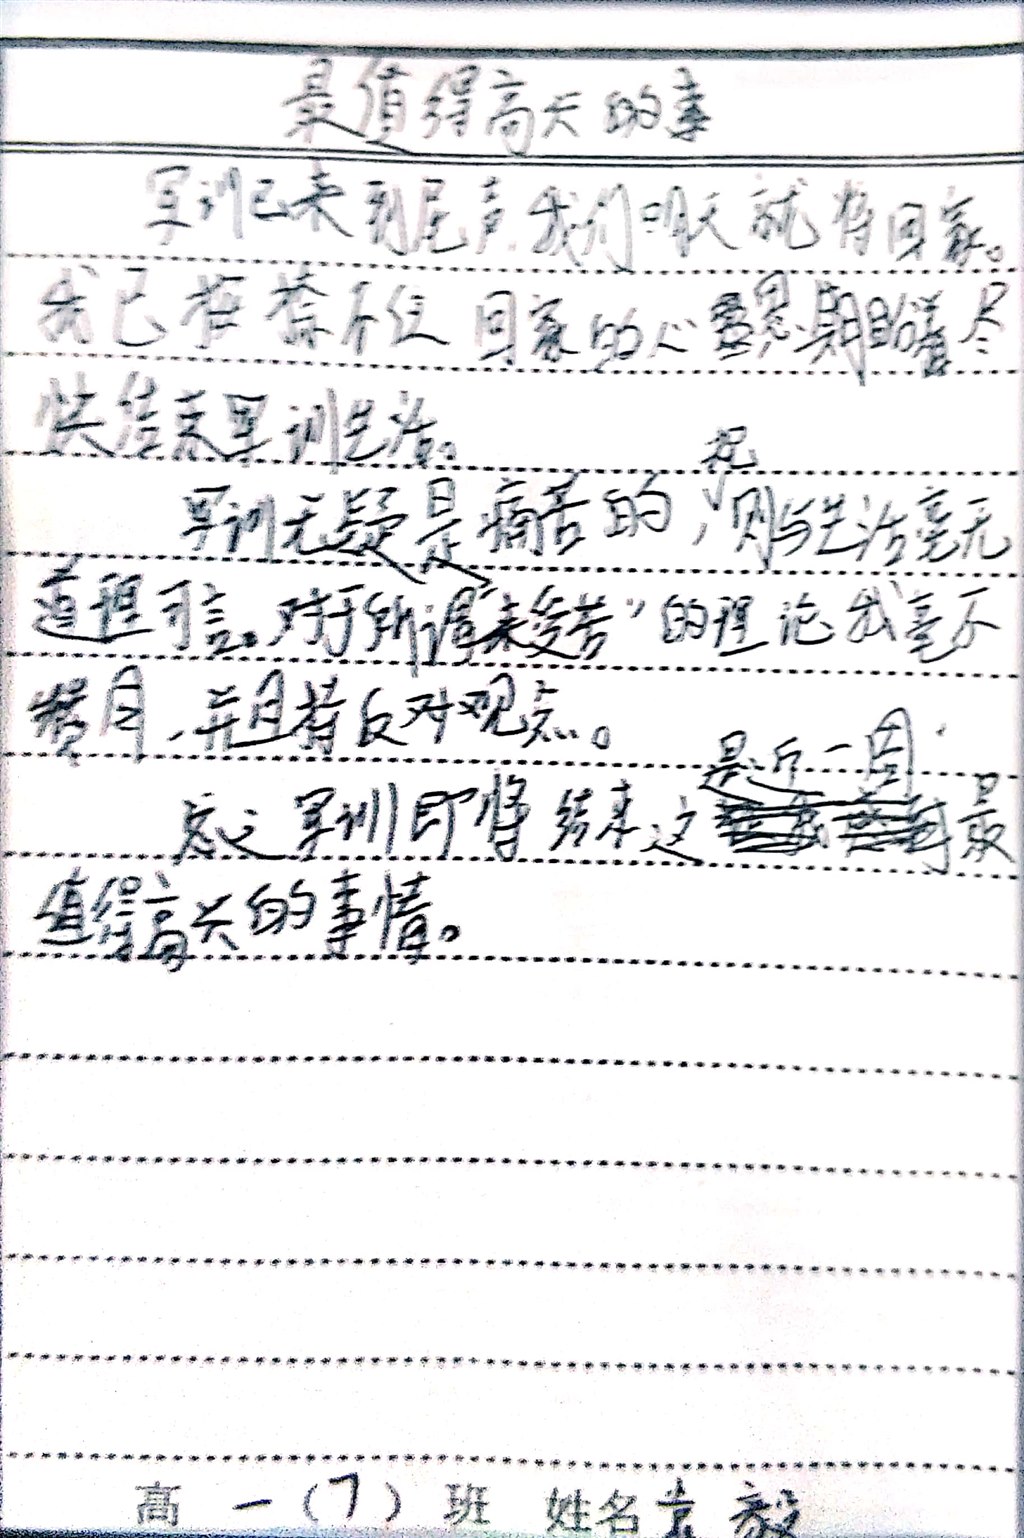 最值得高兴的事
军训已来到尾声,我们明天就将回家。
我已按捺不住回家的心思,期盼着尽
快结束军训生活。
军训无疑是痛苦的,我则与生活毫无
道理可言。对于所谓"来受苦"的理论我毫不
赞同,并且持反对观点。
总之军训即将结束这是近一周最
值得高兴的事情。
高一(7)班 姓名 毅